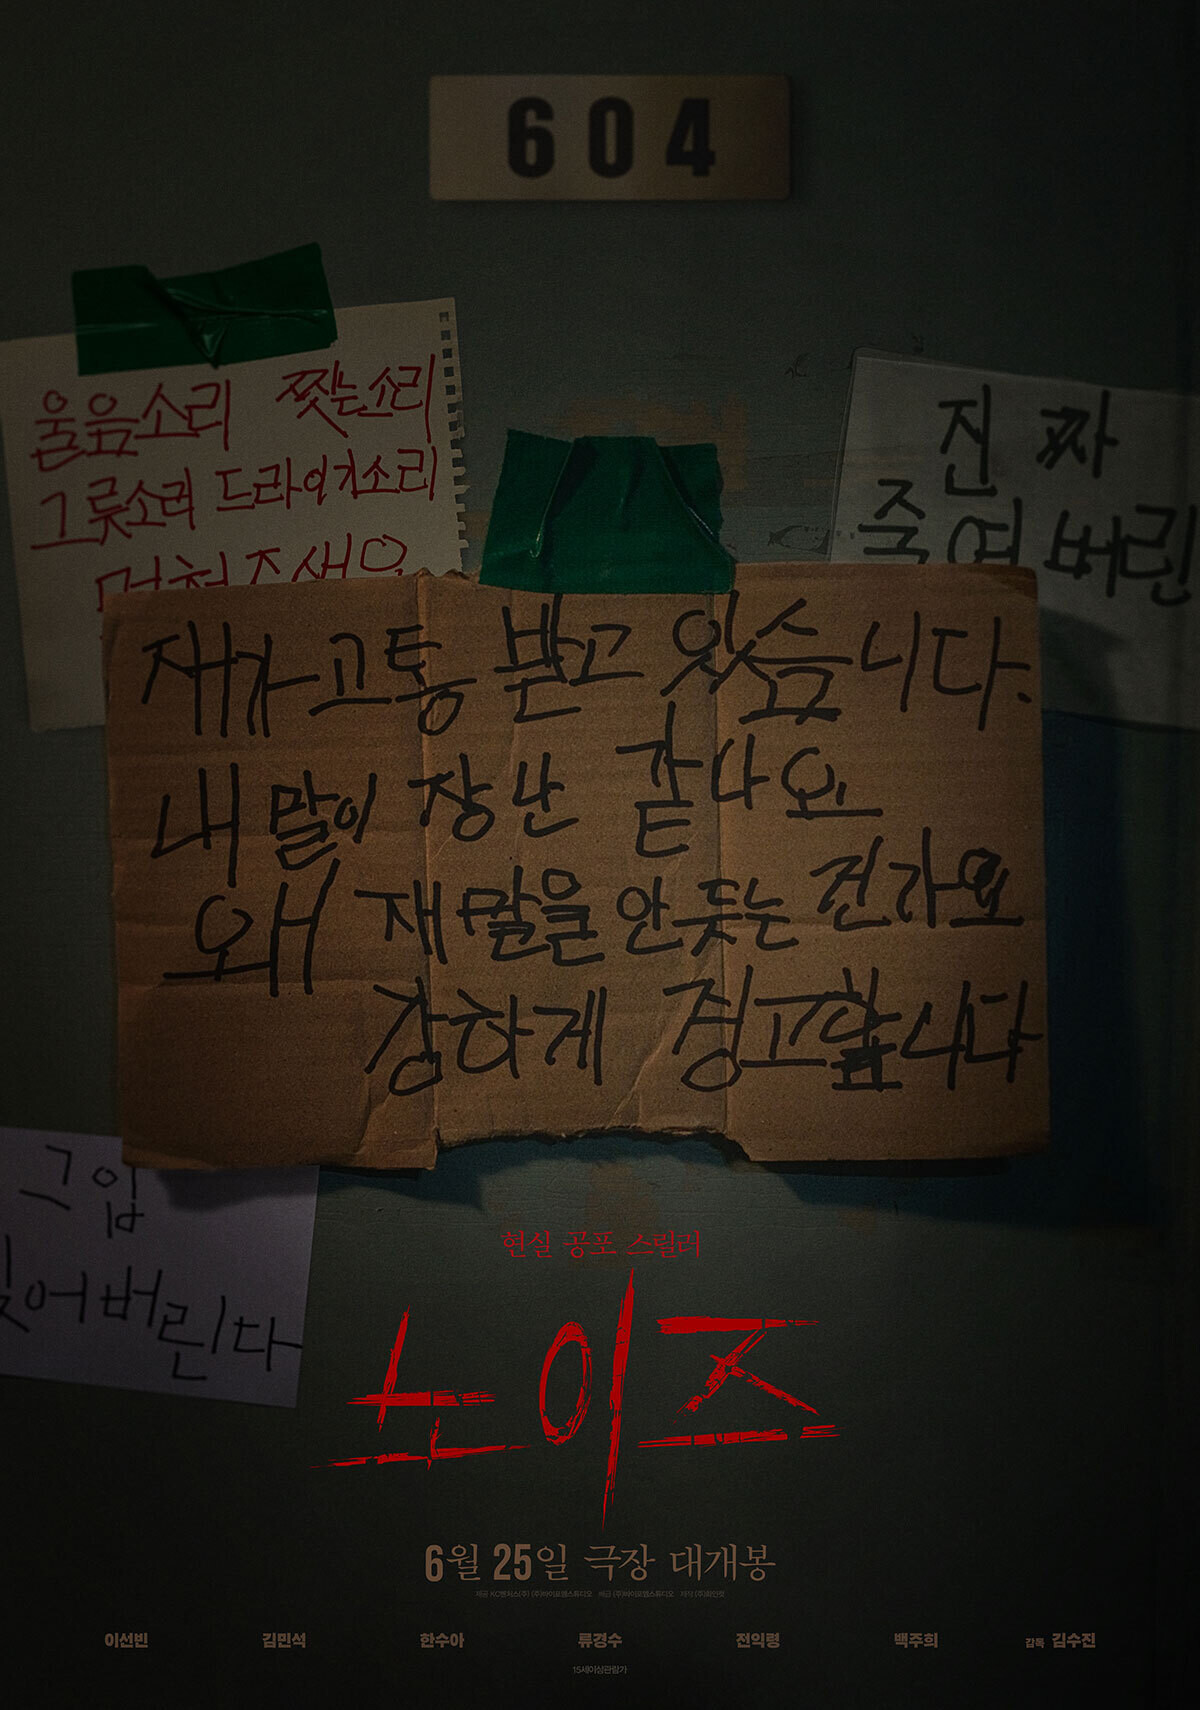 604
울음소리 찢는소리
그릇소리 드라이기소리
멈춰주세요
진짜
죽여버린
재가 고통 받고 있습니다.
내 말이 장난 같나요
왜 재 말을 안 듯는 건가요
강하게 경고합니다
그입
찢어버린다
현실 공포 스릴러
노이즈
6월 25일 극장 대개봉
이선빈 김민석 한수아 류경수 전익령 백주희 감독 김수진
15세이상관람가